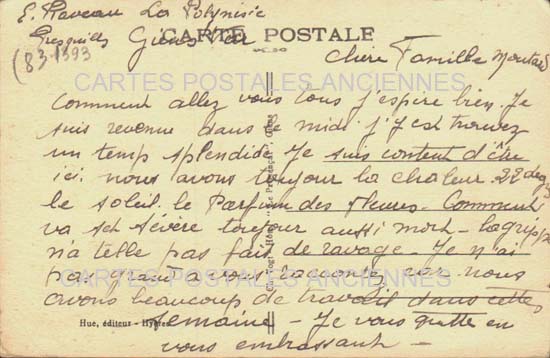 E. Raveau La Polynisie
Presquiles Giens Var
CARTE POSTALE
(83-1393
Chère Famille
CARTES POSTALES ANCIENNES
Comment allez vous tous j'espère bien. Je
suis revenue dans le midi j'y est trouvez
un temps splendide. Je suis content d'être
ici. nous avons toujour la chaleur 22 deg
le soleil. le Parfum des fleurs - Comment
va toujour aussi - La grippe
n'a telle pas fait de ravage - Je n'ai
pas grand a vous raconte car nous
CARTES POSTALES ANCIENNES
avons beaucoup de travail dans cette
Hue, éditeur - Hyères
semaine - Je vous quitte en
vous embrassant -